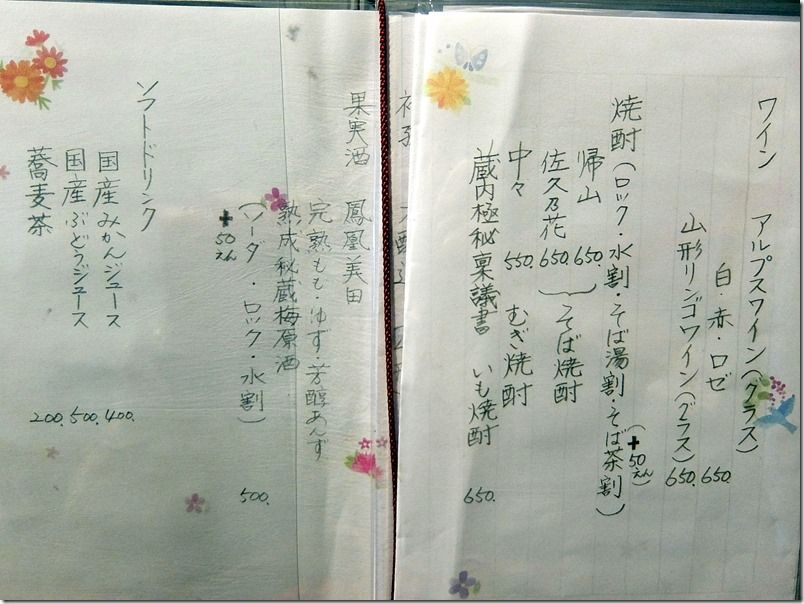 ワイン　アルプスワイン(グラス)
白・赤・ロゼ　650.
山形リンゴワイン(グラス)　650.
焼酎(ロック・水割・そば湯割・そば茶割)
(+50えん)
帰山　650.
佐久乃花　650.
そば焼酎
中々　550.　むぎ焼酎
蔵内極秘稟議書　いも焼酎　650.
果実酒　鳳凰美田
完熟もも・ゆず・芳醇あんず
熟成秘蔵梅原酒
(ソーダ・ロック・水割)　500.
+50えん
ソフトドリンク
国産みかんジュース　400.
国産ぶどうジュース　500.
蕎麦茶　200.